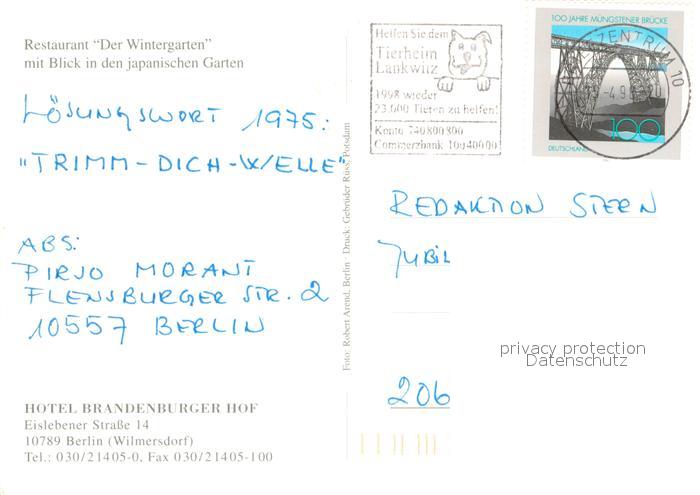 Restaurant "Der Wintergarten"
mit Blick in den japanischen Garten
LÖSUNGSWORT 1975:
"TRIMM-DICH-WELLE"
ABS:
PIRJO MORANT
FLENSBURGER STR. 2
10557 BERLIN
HOTEL BRANDENBURGER HOF
Eislebener Straße 14
10789 Berlin (Wilmersdorf)
Tel.: 030/21405-0, Fax 030/21405-100
Foto: Robert Arend, Berlin · Druck: Gebrüder Russ, Potsdam
Helfen Sie dem
Tierheim
Lankwitz
1998 wieder
23.000 Tieren zu helfen!
Konto 740800800
Commerzbank 10040000
100 JAHRE MÜNGSTENER BRÜCKE
ZENTRUM 10
100
DEUTSCHLAND
REDAKTION STERN
JUBIL
206
privacy protection
Datenschutz